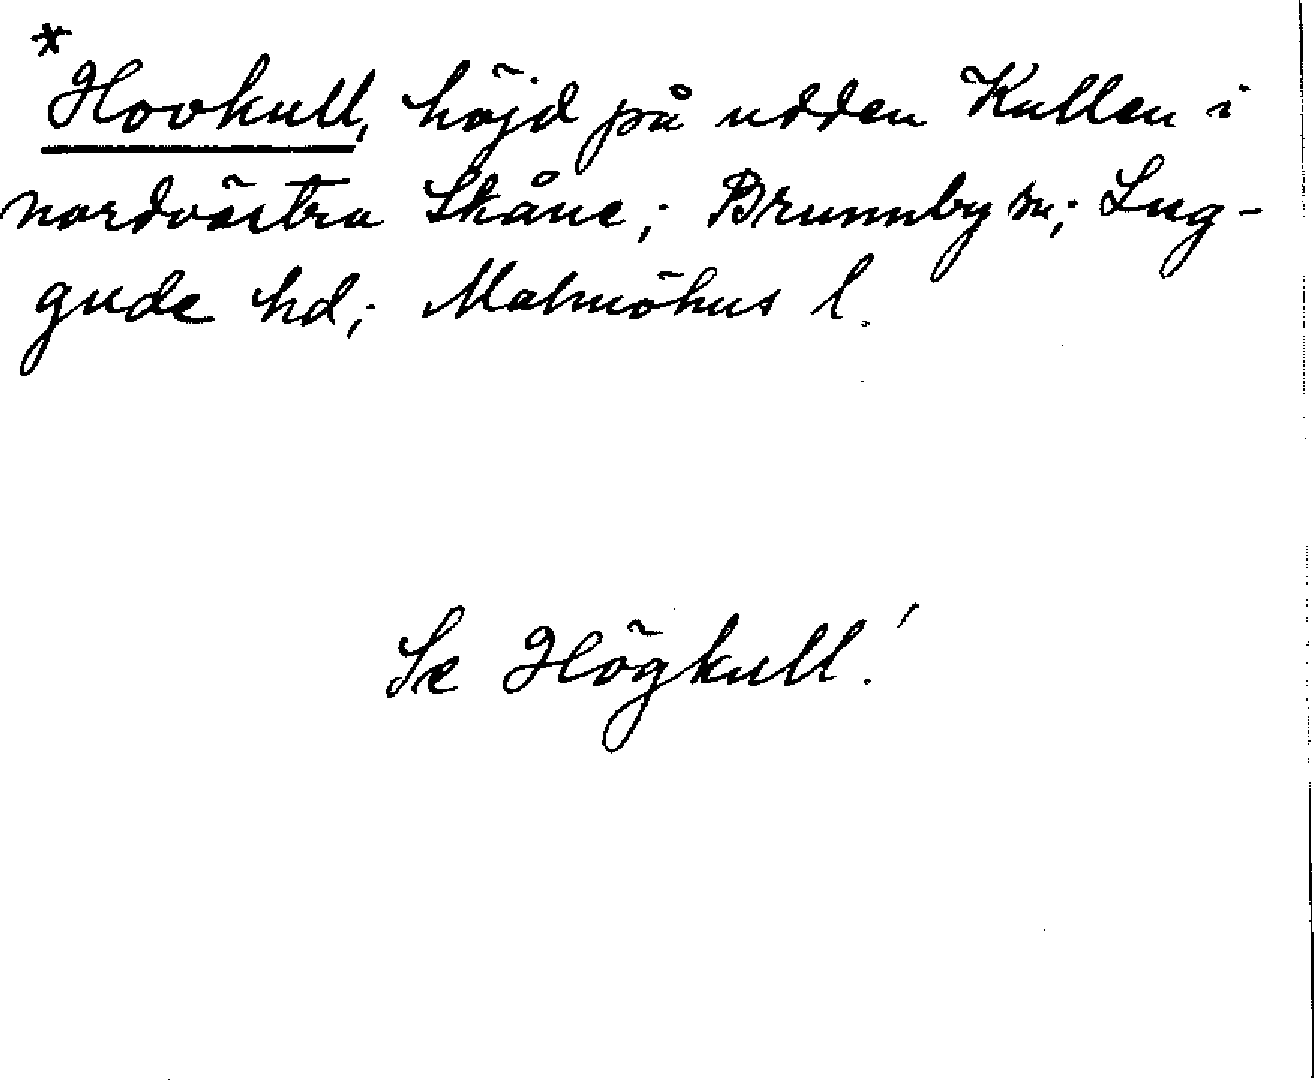 *
Hovkull, höjd på udden Kullen i
nordvästra Skåne; Brunnby sn; Lug-
gude hd; Malmöhus l.
Se Högkull!